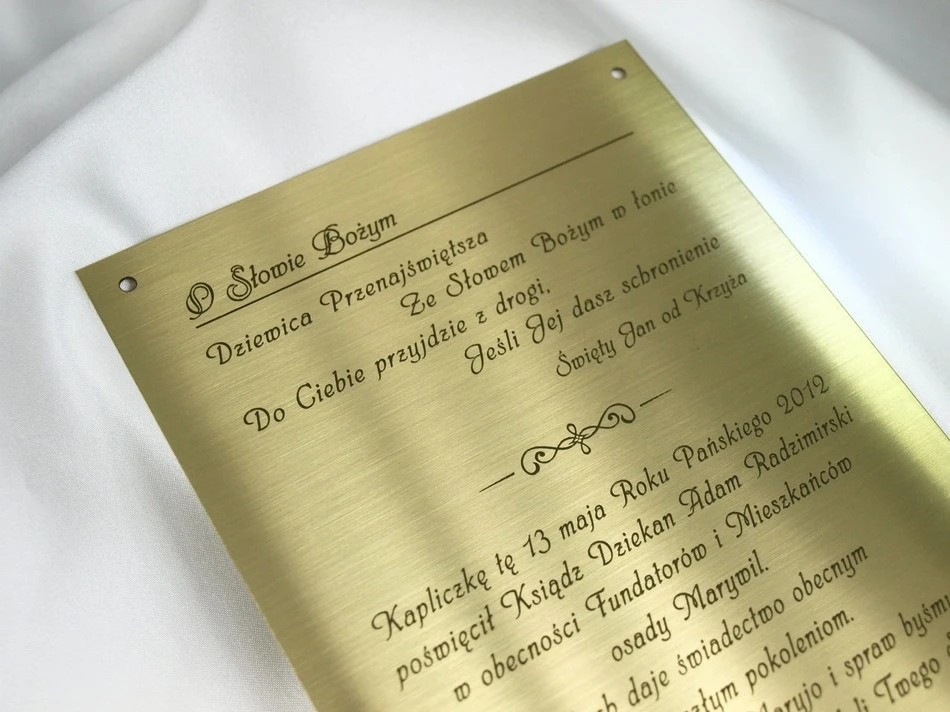 O Słowie Bożym
Dziewica Przenajświętsza
Ze Słowem Bożym w łonie
Do Ciebie przyjdzie z drogi,
Jeśli Jej dasz schronienie
Święty Jan od Krzyża
Kapliczkę tę 13 maja Roku Pańskiego 2012
poświęcił Ksiądz Dziekan Adam Radzimirski
w obecności Fundatorów i Mieszkańców
osady Marywil.
daje świadectwo obecnym
pokoleniom.
i spraw byśmy
Twego